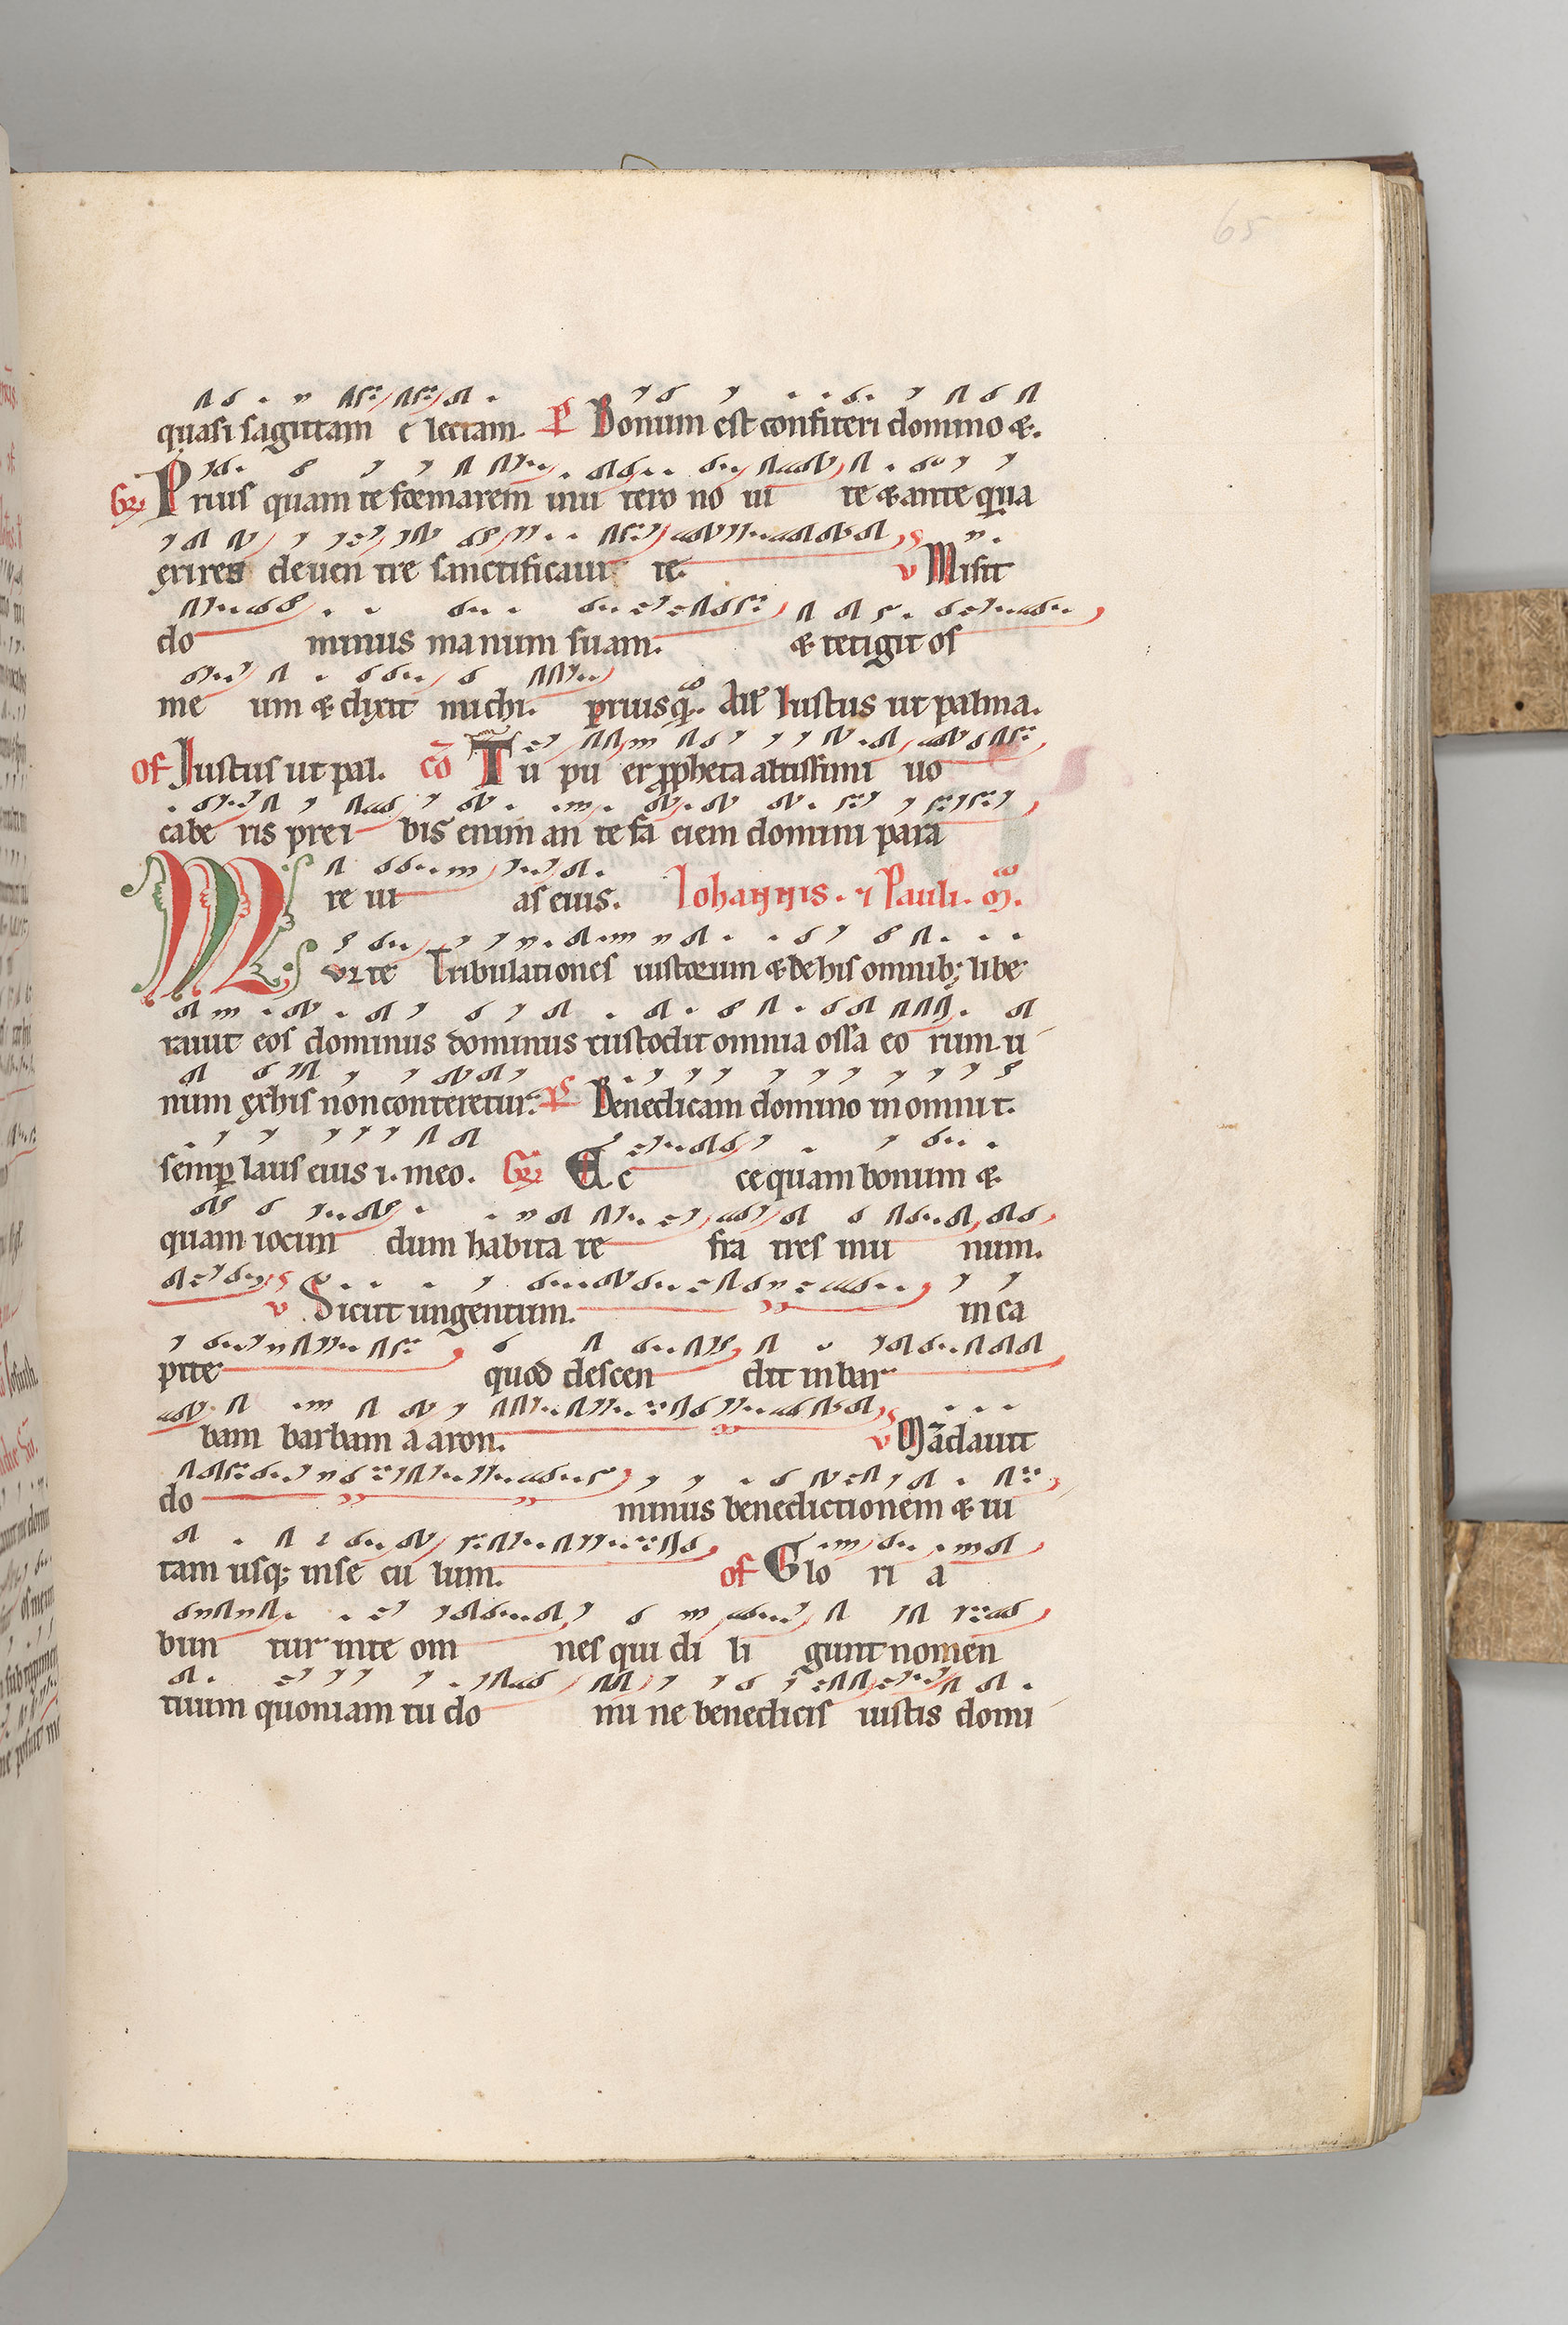 65
quasi sagittam e lectam. ps Bonum est confiteri domino &.
Gr Prius quam te formarem inu tero no ui te & ante qua
exires deuen tre sanctificaui te. v Misit
do minus manum suam. & tetigit os
me um & dixit michi. priusq̄. All Iustus ut palma.
of Iustus ut pal. cō Tu pu er ꝓpheta altissimi uo
cabe ris prei bis enim an te fa ciem domini para
re ui as eius. Iohannis. ⁊ Pauli. m̄.
Multe Tribulationes iustorum & de his omnib; libe
rauit eos dominus dominus custodit omnia ossa eo rum u
num exhis non conteretur. ps Benedicam domino in omni t.
semp̄ laus eius i. meo. Gr Ec ce quam bonum &
quam iocun dum habita re fra tres inu num.
v Sicut ungentum. in ca
pite quod descen dit in bar
bam barbam a aron. v Mādauit
do minus benedictionem & ui
tam usq; inse cu lum. of Glo ri a
bun tur inte om nes qui di li gunt nomen
tuum quoniam tu do mi ne benedicis iustis domi